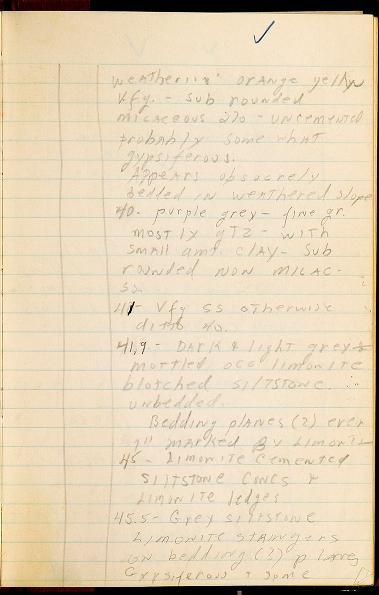 weathering orange yellow
Vfg. - sub rounded
micaceous 2% - uncemented
probably somewhat
gypsiferous.
Appears obscurely
bedded in weathered slope
40. purple grey - fine gr.
mostly qtz - with
small amt. clay - sub
rounded non micac-
41 - Vfg ss otherwise
ditto 40.
41.9 - Dark & light grey
mottled occ limonite
blotched siltstone.
unbedded
Bedding planes (?) every
marked by limonite
45 - Limonite cemented
siltstone concs &
limonite ledges
45.5 - Grey siltstone
Limonite stringers
on bedding (?) planes
Gypsiferous & some